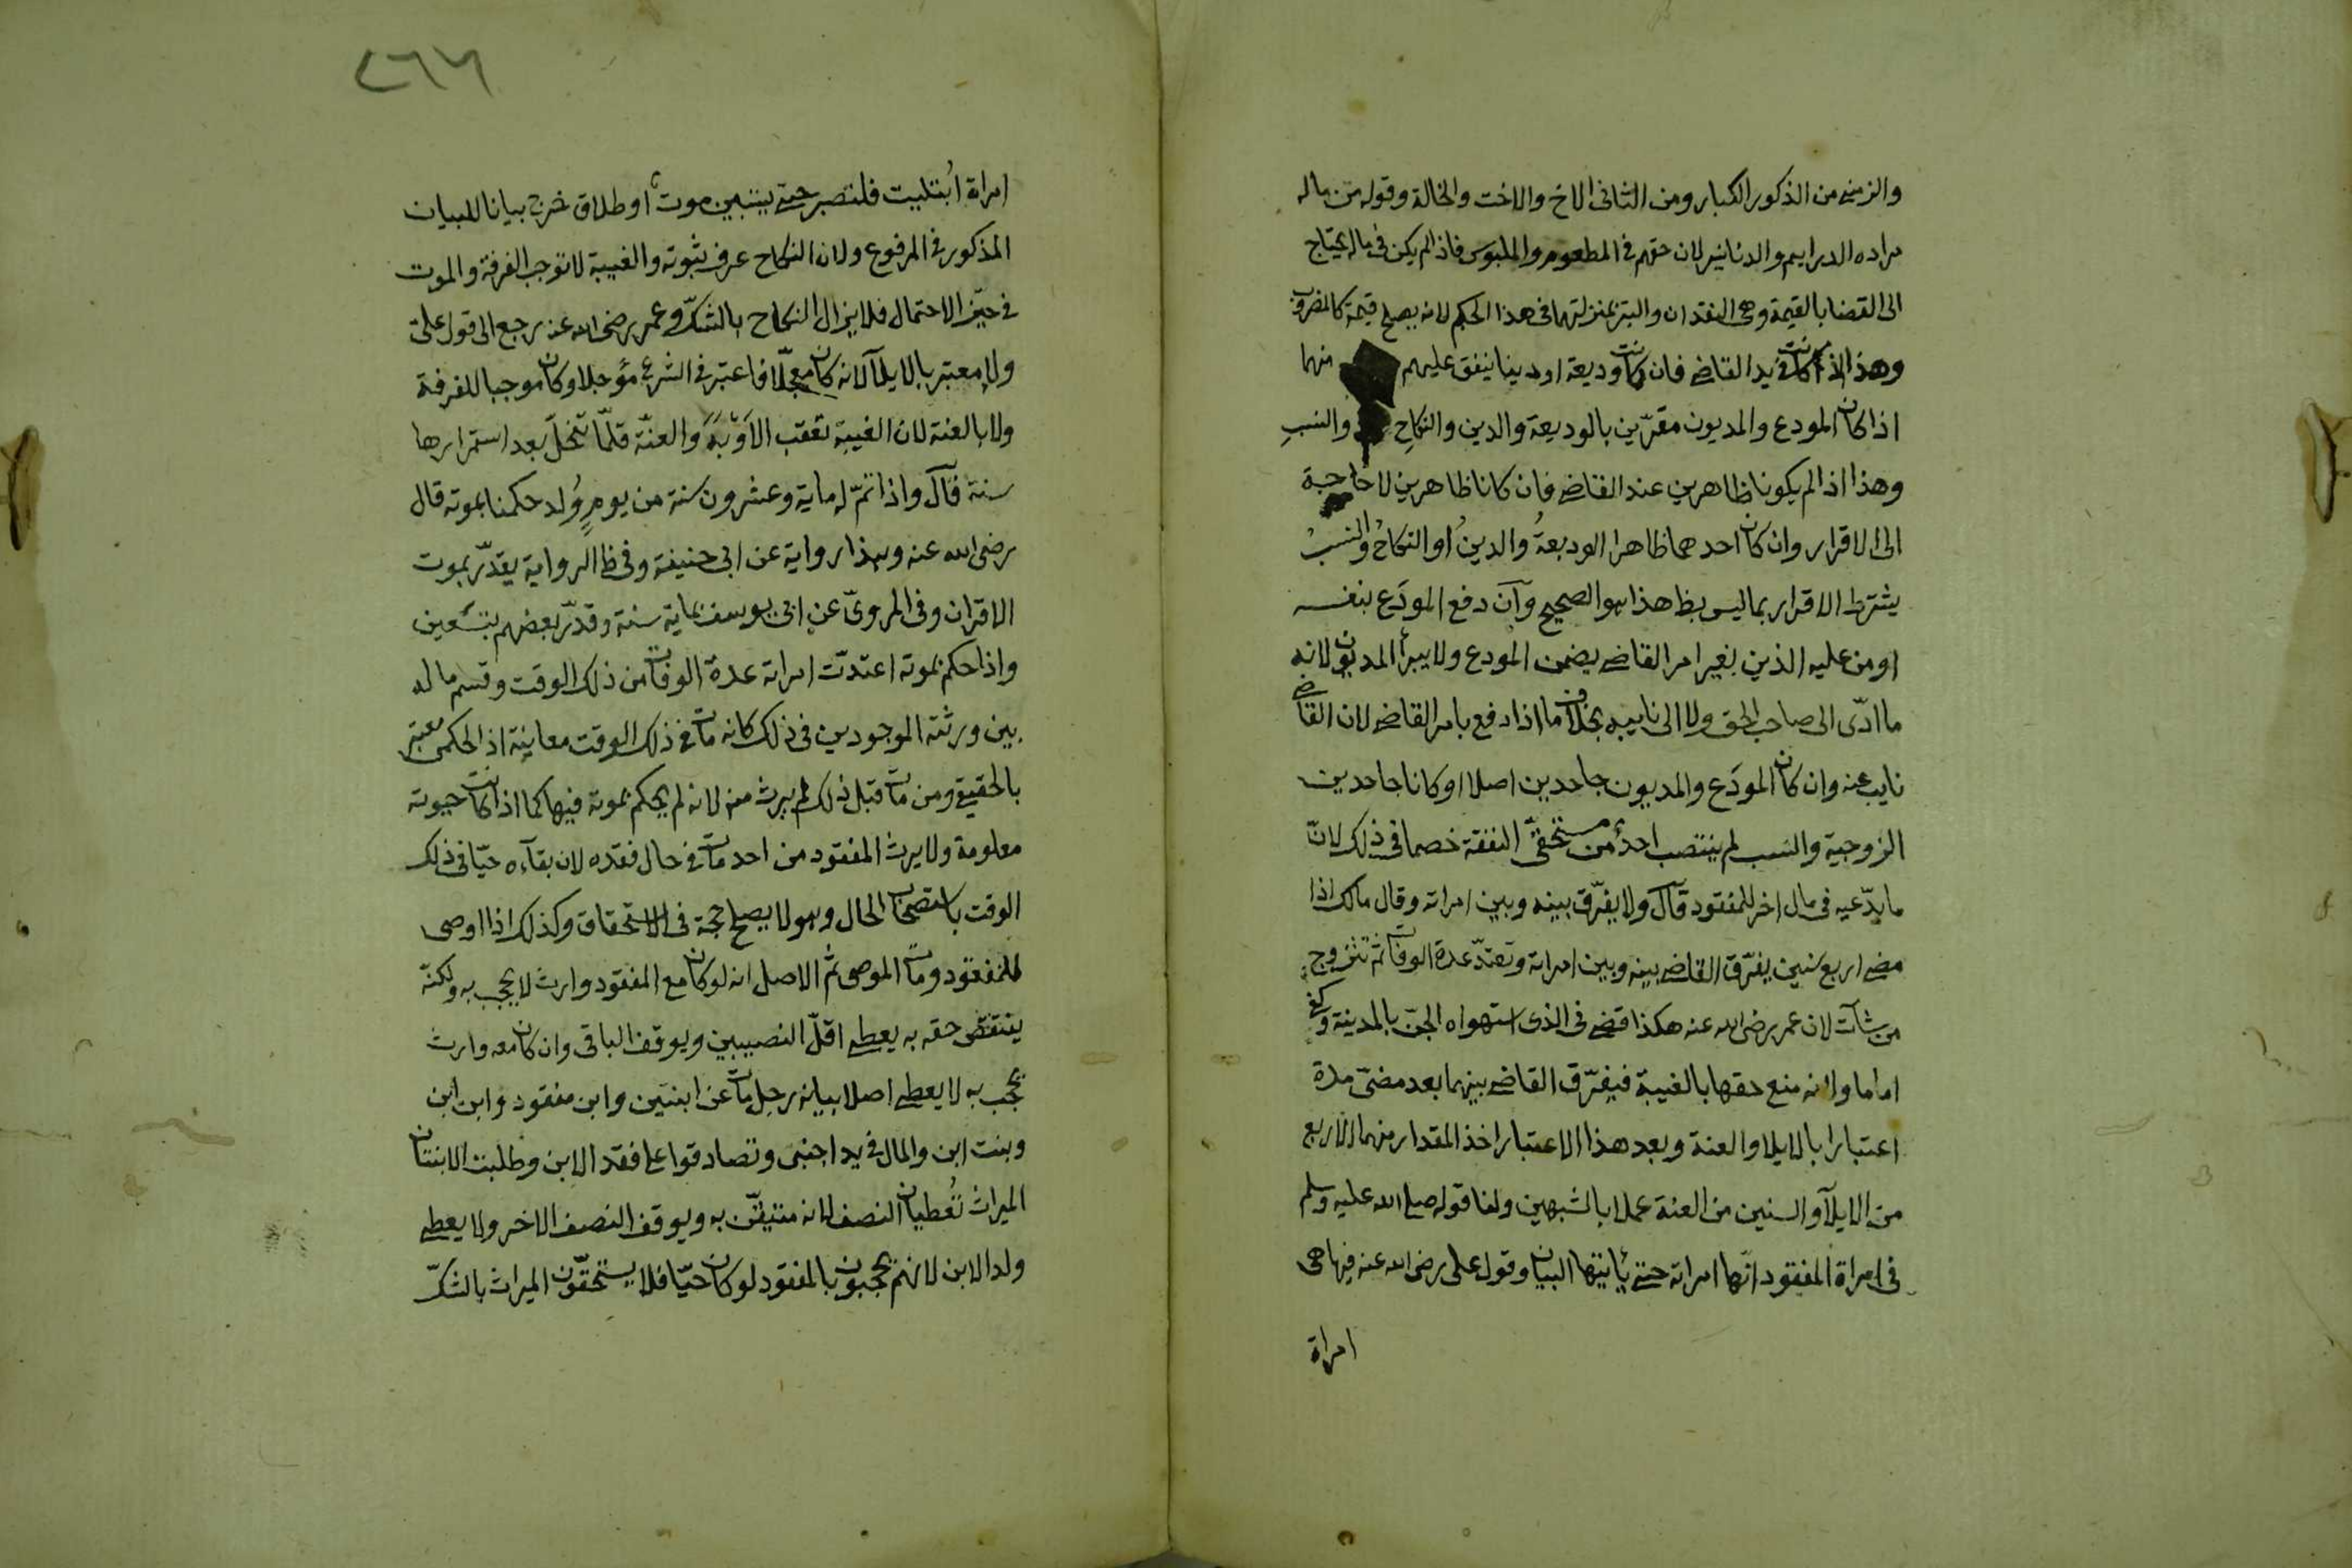 والزمنى من الذكور الكبار ومن الثانى الاخ والاخت والخالة وقوله من ماله
مراده الدراهم والدنانير لان حقهم فى المطعوم والملبوس فاذا لم يكن فى ماله يحتاج
الى القضا بالقيمة وهى النقدان والتبر بمنزلتهما فى هذا الحكم لانه يصلح قيمة كالمضروب
وهذا اذا كانت فى يد القاضى فان كانت وديعة او دينا ينفق عليهم منهما
اذا كان المودع والمديون مقرّين بالوديعة والدين والنكاح والنسب
وهذا اذا لم يكونا ظاهرين عند القاضى فان كانا ظاهرين لا حاجة
الى الاقرار وان كان احدهما ظاهرا الوديعةُ والدينُ او النكاحُ والنسبُ
يشترط الاقرار بما ليس بظ هذا هو الصحيح وآن دفع المودَع بنفسه
او من عليه الدين بغير امر القاضى يضمن المودع ولا يبرأ المديون لانه
ما ادّى الى صاحب الحق ولا الى نايبه بخلاف ما اذا دفع بامر القاضى لان القاضى
نايب عنه وان كان المودَع والمديون جاحدين اصلا او كانا جاحدين
الزوجية والنسب لم ينتصب احدٌ من مستحقّى النفقة خصما فى ذلك لانّ
ما يدّعيه فى مال اخر للمفقود قآل ولا يفرّق بينه وبين امراته وقال مالك اذا
مضى اربع سنين يفرّق القاضى بينه وبين امراته وتعتدّ عدة الوفات ثم تتزوج
من شآت لان عمر رضى الله عنه هكذا قضى فى الذى استهواه الجنّ بالمدينة وكفى به
اماما ولانه منع حقها بالغيبة فيفرّق القاضى بينهما بعد مضىّ مدة
اعتبارا بالايلا والعنة وبعد هذا الاعتبار اخذ المقدار منهما الاربع
من الايلآ والسنين من العنة عملا بالشبهين ولنا قوله صلى الله عليه وسلم
فى امراة المفقود انّها امراته حتى يأتيها البيان وقول على رضى الله عنه فيها هى
امراة
٢٦٧
امراة ابُتليت فلتصبر حتى يتبين موت او طلاق خرج بيانا للبيان
المذكور فى المرفوع ولان النكاح عرف ثبوته والغيبة لا توجب الفرقة والموت
فى حيّز الاحتمال فلا يزال النكاح بالشكّ وعمر رضى الله عنه رجع الى قول علىّ
ولا معتبر بالايلآ لانه كان معجّلا فاعتبر فى الشرع مؤجلا وكان موجبا للفرقة
ولا بالعنة لان الغيبة تعقب الاَوْبَةَ والعنّة قلّما تنحلّ بعد استمرارها
سنة قآل واذا تمّ له ماية وعشرون سنة من يومٍ وُلد حكمنا بموته قال
رضى الله عنه وهذا رواية عن ابى حنيفة وفى ظ الرواية يقدّر بموت
الاقران وفى المروىّ عن ابى يوسف بماية سنة وقدّر بعضهم بتسعين
واذا حكم بموته اعتدّت امراته عدة الوفات من ذلك الوقت وقسم ماله
بين ورثته الموجودين فى ذلك كانه مات فى ذلك الوقت معاينة اذ الحكمى معتبر
بالحقيقى ومن مات قبل ذلك لم يرث منه لانه لم يحكم بموته فيها كما اذا كانت حيوته
معلومة ولا يرث المفقود من احد مات فى حال فقده لان بقآءه حيّا فى ذلك
الوقت باستصحاب الحال وهو لا يصلح حجة فى الاستحقاق وكذلك اذا اوصى
للمفقود ومات الموصى ثم الاصل انه لو كان مع المفقود وارث لا يحجب به ولكنّه
ينتقض حقه به يعطى اقلّ النصيبين ويوقف الباقى وان كان معه وارث
يحجب به لا يعطى اصلا بيانه رجل مات عن ابنتين وابن مفقود وابن ابن
وبنت ابن والمال فى يد اجنبى وتصادقوا على فقد الابن وطلبت الابنتان
الميراث تُعطيان النصف لانه متيقّن به ويوقف النصف الاخر ولا يعطى
ولد الابن لانهم يحجبون بالمفقود لو كان حيّا فلا يستحقّون الميراث بالشكّ